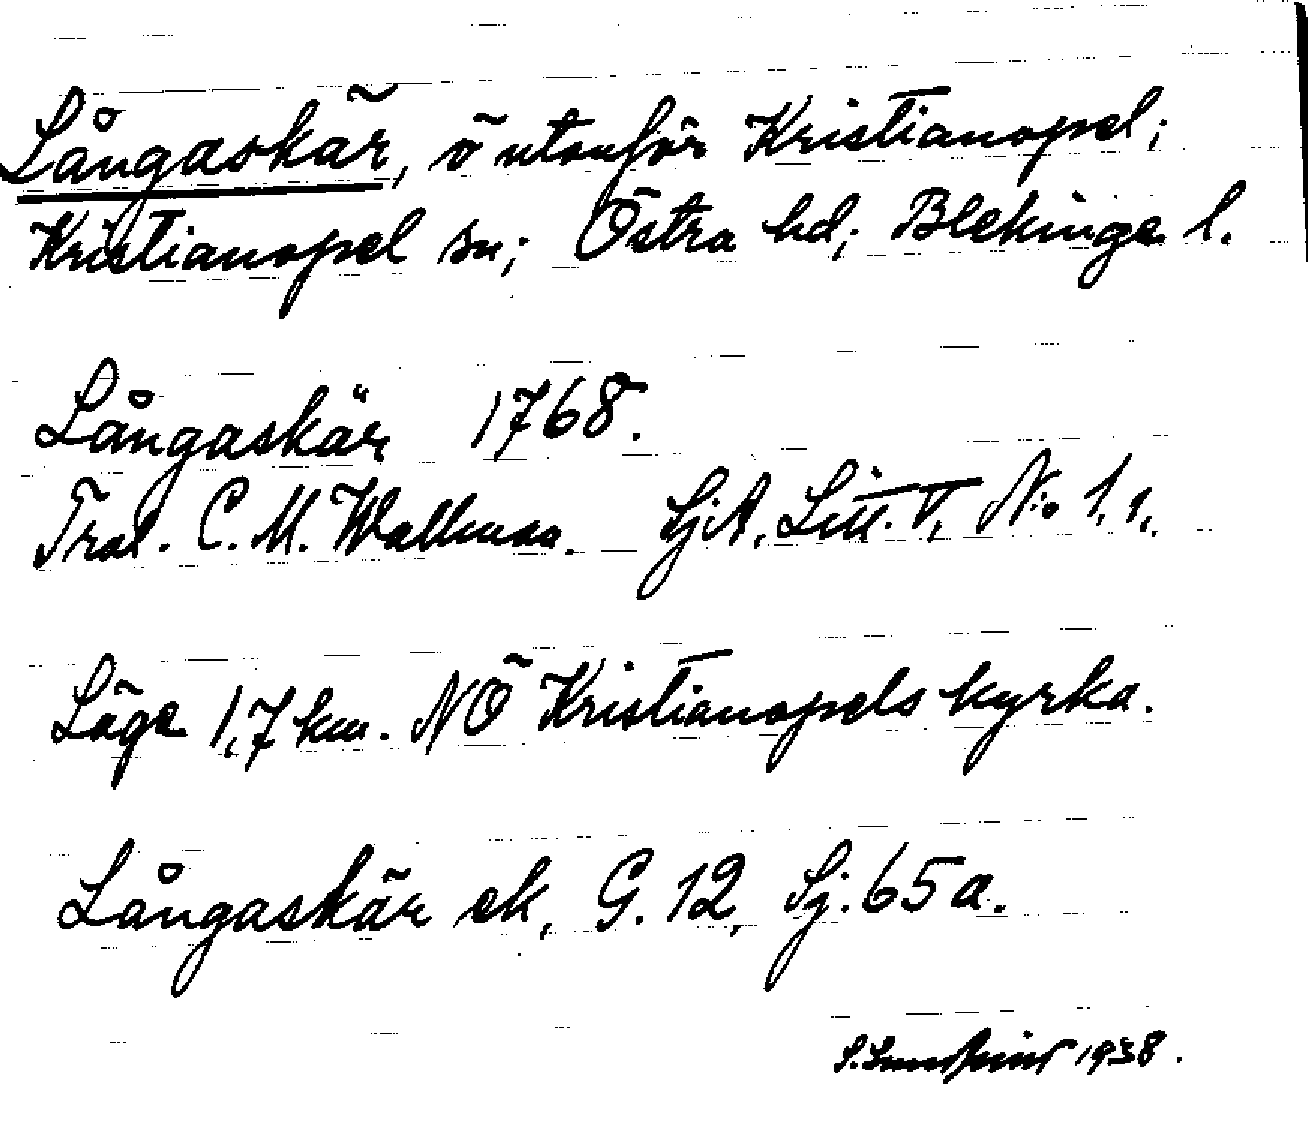 Långaskär, ö utanför Kristianopel;
Kristianopel sn; Östra hd; Blekinge l.
Långaskär 1768.
C. M. Wallman. SjA. Litt. V. No 1, 1.
Läge 1,7 km. NÖ Kristianopels kyrka.
Långaskär ek, G. 12, Sj. 65a.
1938.